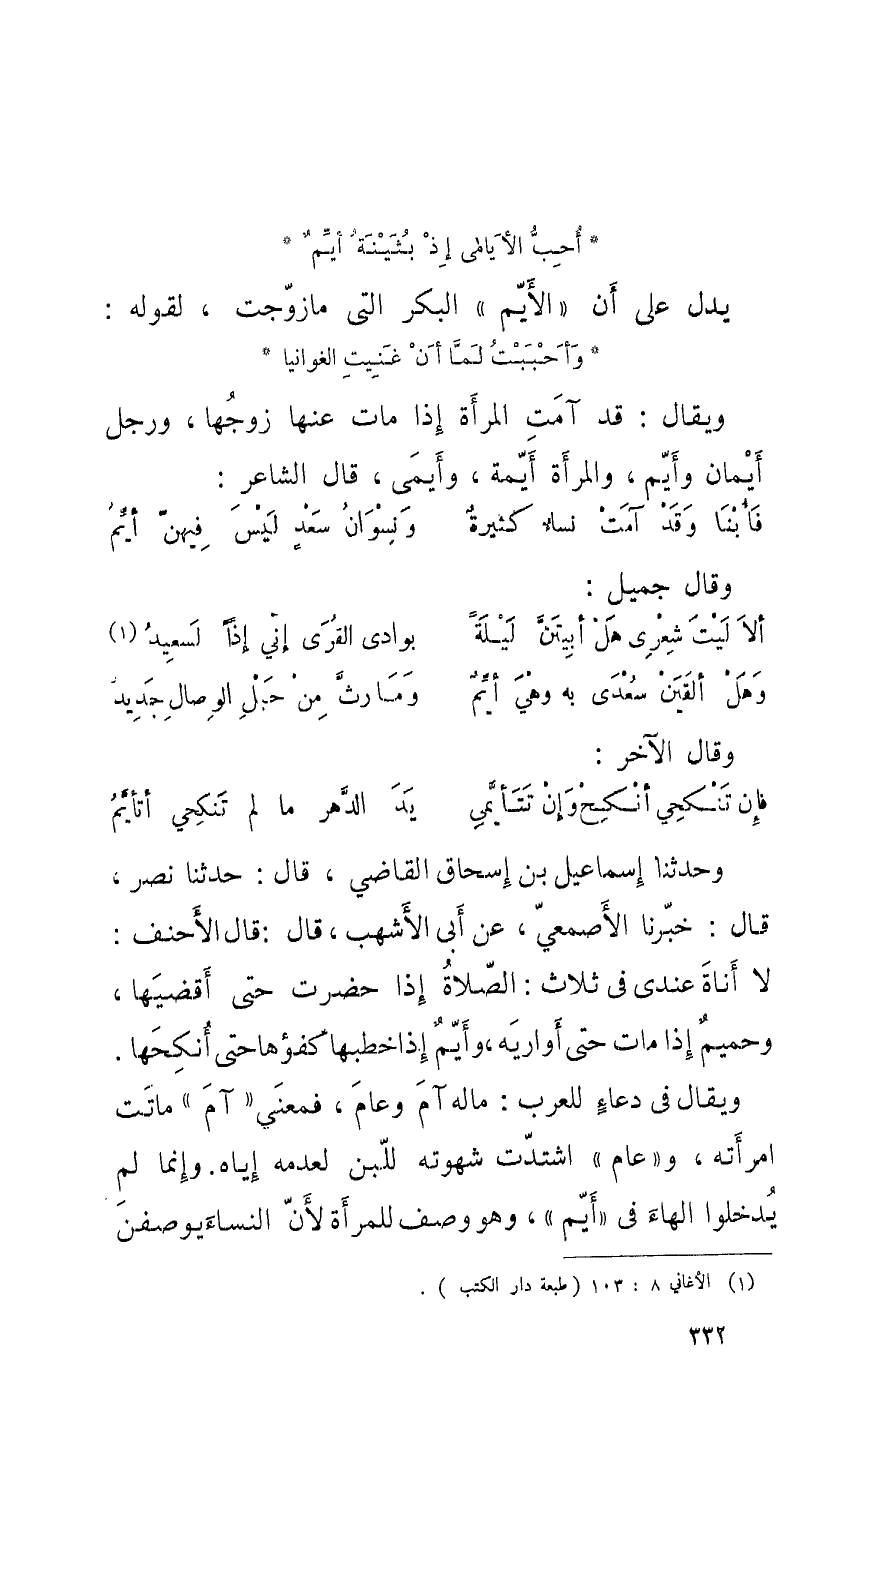 * أُحِبُّ الأَيامَى إِذْ بُثَيْنَةُ أَيِّمٌ *
يدل على أَن «الأَيّم» البكر التى مازوّجت ، لقوله :
* وَأَحْبَبْتُ لَمَّا أَنْ غَنِيتِ الغوانيا *
ويقال : قد آمَتِ المرأَة إِذا مات عنها زوجُها ، ورجل
أَيْمان وأَيّم ، والمرأَة أَيّمة ، وأَيمَى ، قال الشاعر :
فَأُبْنَا وَقَدْ آمَتْ نساء كَثيرةٌ وَنِسْوَانُ سَعْدٍ لَيْسَ فِيهنّ أَيِّمُ
وقال جميل :
أَلاَ لَيْتَ شِعْرِى هَلْ أَبِيتَنَّ لَيْلَةً بوادى القُرَى إِنّي إِذَاً لَسَعِيدُ (١)
وَهَلْ أَلقَيَنْ سُعْدَى به وهْيَ أَيِّمٌ وَمَا رثَّ مِنْ حَبْلِ الوِصالِ جَدِيدُ
وقال الآخر :
فإِن تَنْكحِي أَنْكِحْ وَإِنْ تَتَأَيَّمِي يَدَ الدَّهر ما لم تَنكِحِي أَتأَيَّمُ
وحدثنا إِسماعيل بن إِسحاق القاضي ، قال : حدثنا نصر ،
قال : خبّرنا الأَصمعيّ ، عن أَبى الأَشهب ، قال : قال الأَحنف :
لا أَناةَ عندى فى ثلاث : الصّلاةُ إِذا حضرت حتى أَقضيَها ،
وحميمٌ إِذا مات حتى أَواريَه ، وأَيّمٌ إِذا خطبها كفؤها حتى أُنكِحَها .
ويقال فى دعاءٍ للعرب : ماله آمَ وعامَ ، فمعنَي «آمَ» ماتَت
امرأَته ، و«عام» اشتدّت شهوته للّبن لعدمه إِياه. وإِنما لم
يُدخلوا الهاءَ فى «أَيّم» ، وهو وصف للمرأَة لأَنّ النساءَ يوصفنَ
(١) الأغاني ٨ : ١٠٣ (طبعة دار الكتب ) .
٣٣٢